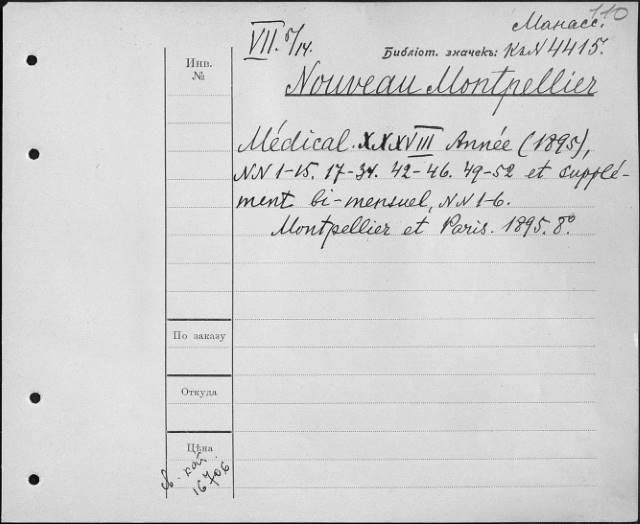 110
Манасс.
VII. 5/14.
Библіот. значекъ: КъN 4415.
Инв.
№
Nouveau Montpellier
Médical. XXXVIII Année (1895),
NN 1-15. 17-34. 42-46. 49-52 et supplé-
ment bi-mensuel, NN 1-6.
Montpellier et Paris. 1895. 8°.
По заказу
Откуда
Цѣна
кат.
16706